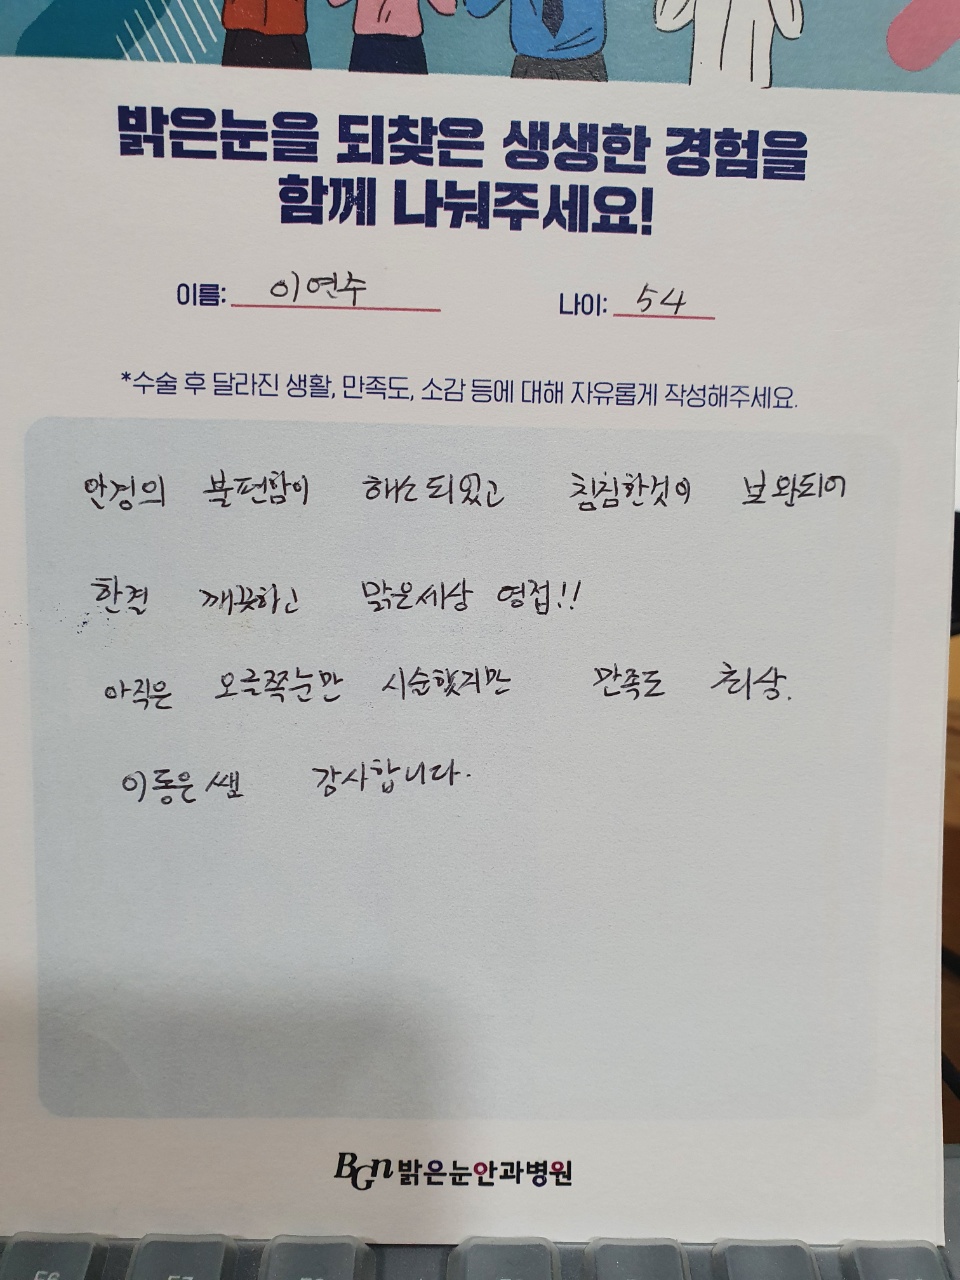 밝은눈을 되찾은 생생한 경험을
함께 나눠주세요!
이름: 이연수 나이: 54
*수술 후 달라진 생활, 만족도, 소감 등에 대해 자유롭게 작성해주세요.
안경의 불편함이 해소되었고 침침한것이 보완되어
한결 깨끗하고 맑은세상 영접!!
아직은 오른쪽눈만 시술했지만 만족도 최상.
이동은 쌤 감사합니다.
BGn 밝은눈안과병원